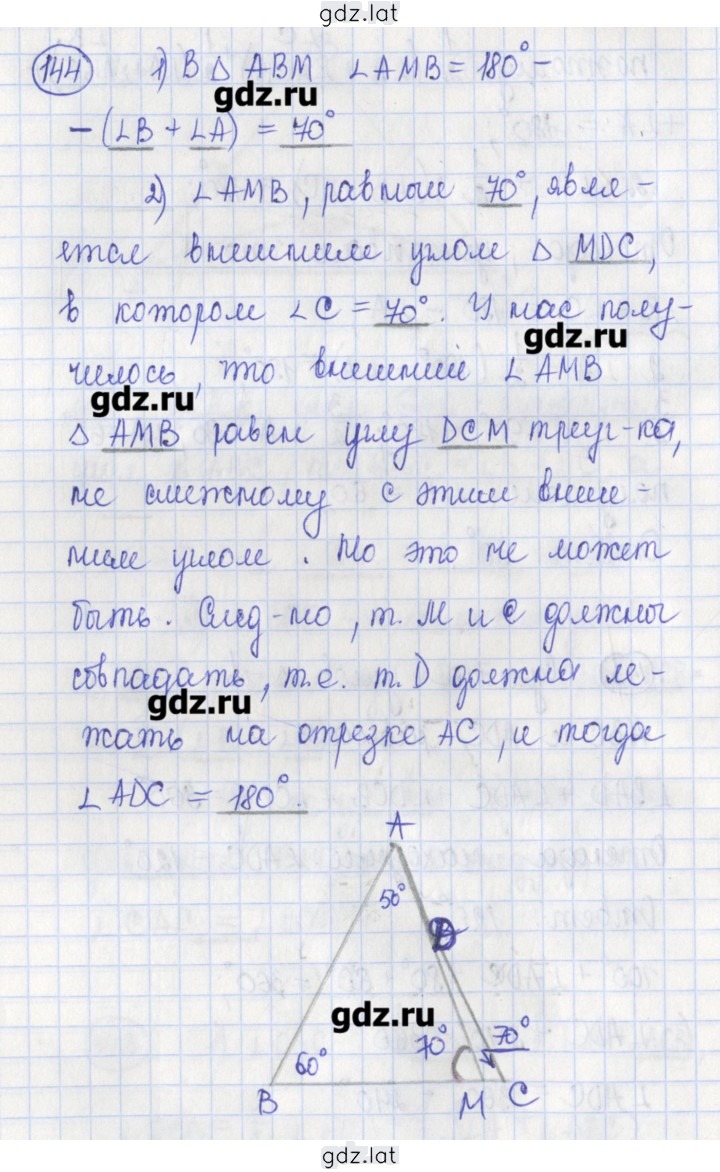 gdz.lat
144 1) В △ ABM ∠AMB = 180° –
gdz.ru
– (∠B + ∠A) = 70°
2) ∠AMB, равный 70°, явля-
ется внешним углом △ MDC,
в котором ∠C = 70°. У нас полу-
gdz.ru
чилось, что внешний ∠AMB
gdz.ru
△ AMB равен углу DCM треуг-ка,
не смежному с этим внеш-
ним углом. Но это не может
быть. След-но, т. М и С должны
совпадать, т.е. т. D должна ле-
gdz.ru
жать на отрезке AC, и тогда
∠ADC = 180°.
A
50°
D
gdz.ru
70° 70°
60°
B M C
gdz.lat